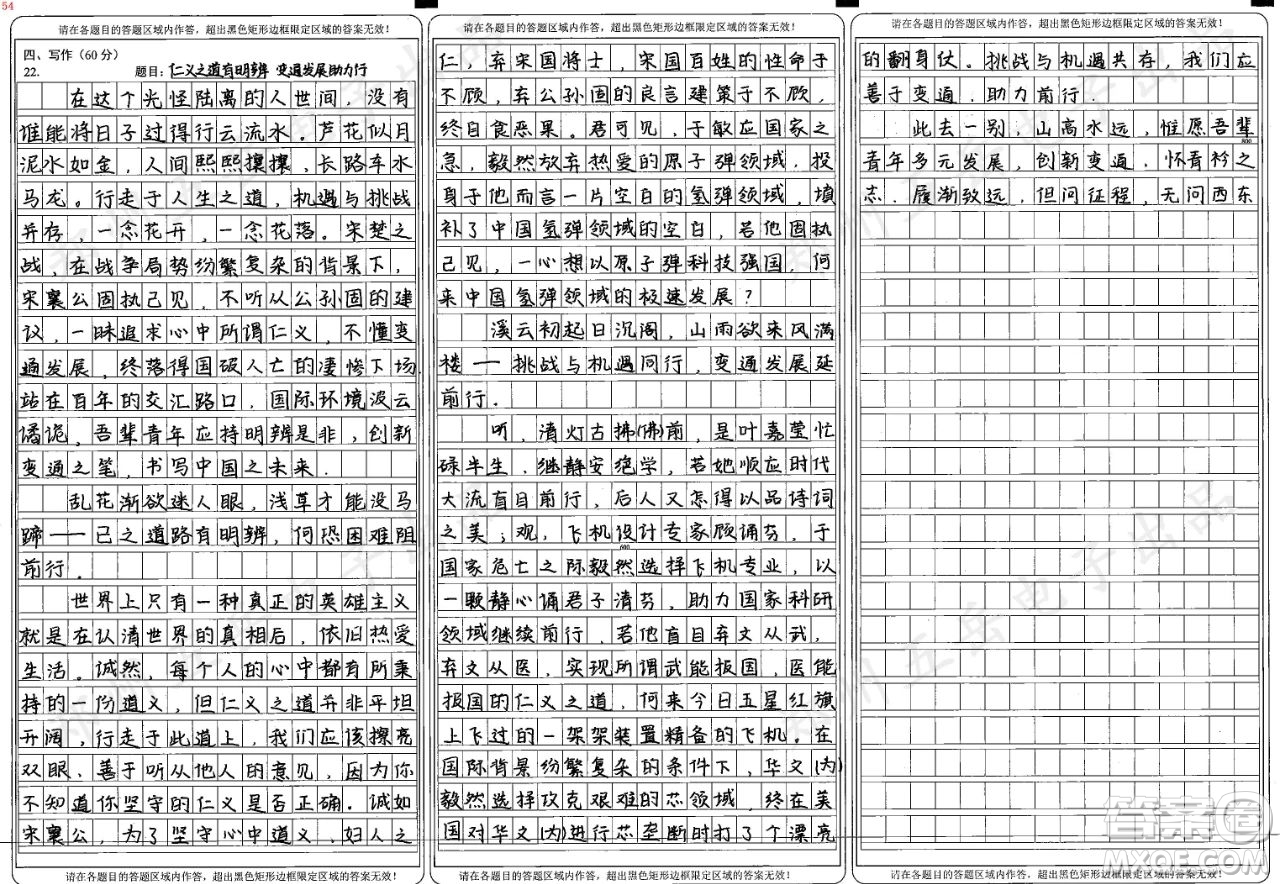 54
请在各题目的答题区域内作答，超出黑色矩形边框限定区域的答案无效！
四、写作(60分)
22.
题目：仁义之道有明辨 变通发展助力行
在这个光怪陆离的人世间，没有
谁能将日子过得行云流水。芦花似月
泥水如金，人间熙熙攘攘，长路车水
马龙。行走于人生之道，机遇与挑战
并存，一念花开，一念花落。宋楚之
战，在战争局势纷繁复杂的背景下，
宋襄公固执己见，不听从公孙固的建
议，一昧追求心中所谓仁义，不懂变
通发展，终落得国破人亡的凄惨下场
站在百年的交汇路口，国际环境波云
谲诡，吾辈青年应持明辨是非，创新
变通之笔，书写中国之未来.
乱花渐欲迷人眼，浅草才能没马
蹄——已之道路有明辨，何恐困难阻
前行.
世界上只有一种真正的英雄主义
就是在认清世界的真相后，依旧热爱
生活。诚然，每个人的心中都有所秉
持的一份道义，但仁义之道并非平坦
开阔，行走于此道上，我们应该擦亮
双眼、善于听从他人的意见，因为你
不知道你坚守的仁义是否正确。诚如
宋襄公，为了坚守心中道义，妇人之
请在各题目的答题区域内作答，超出黑色矩形边框限定区域的答案无效！
请在各题目的答题区域内作答，超出黑色矩形边框限定区域的答案无效！
仁，弃宋国将士，宋国百姓的性命于
不顾，弃公孙固的良言建策于不顾，
终日食恶果。君可见，于敏应国家之
急，毅然放弃热爱的原子弹领域，投
身于他而言一片空白的氢弹领域，填
补了中国氢弹领域的空白，若他固执
己见，一心想以原子弹科技强国，何
来中国氢弹领域的极速发展？
溪云初起日沉阁，山雨欲来风满
楼——挑战与机遇同行，变通发展延
前行.
听，清灯古拂(佛)前，是叶嘉莹忙
碌半生，继静安绝学，若她顺应时代
大流盲目前行，后人又怎得以品诗词
之美；观，飞机设计专家顾诵芬，于
600
国家危亡之际毅然选择飞机专业，以
一颗静心诵君子清芬，助力国家科研
领域继续前行，若他盲目弃文从武，
弃文从医，实现所谓武能报国，医能
报国的仁义之道，何来今日五星红旗
上飞过的一架架装置精备的飞机。在
国际背景纷繁复杂的条件下，华文(为)
毅然选择攻克艰难的芯领域，终在美
国对华文(为)进行芯垄断时打了个漂亮
请在各题目的答题区域内作答，超出黑色矩形边框限定区域的答案无效！
请在各题目的答题区域内作答，超出黑色矩形边框限定区域的答案无效！
的翻身仗。挑战与机遇共存，我们应
善于变通，助力前行.
此去一别，山高水远，惟愿吾辈
800
青年多元发展，创新变通，怀青衿之
志，履渐致远，但问征程，无问西东
请在各题目的答题区域内作答，超出黑色矩形边框限定区域的答案无效！
答案圈
MXQE.COM